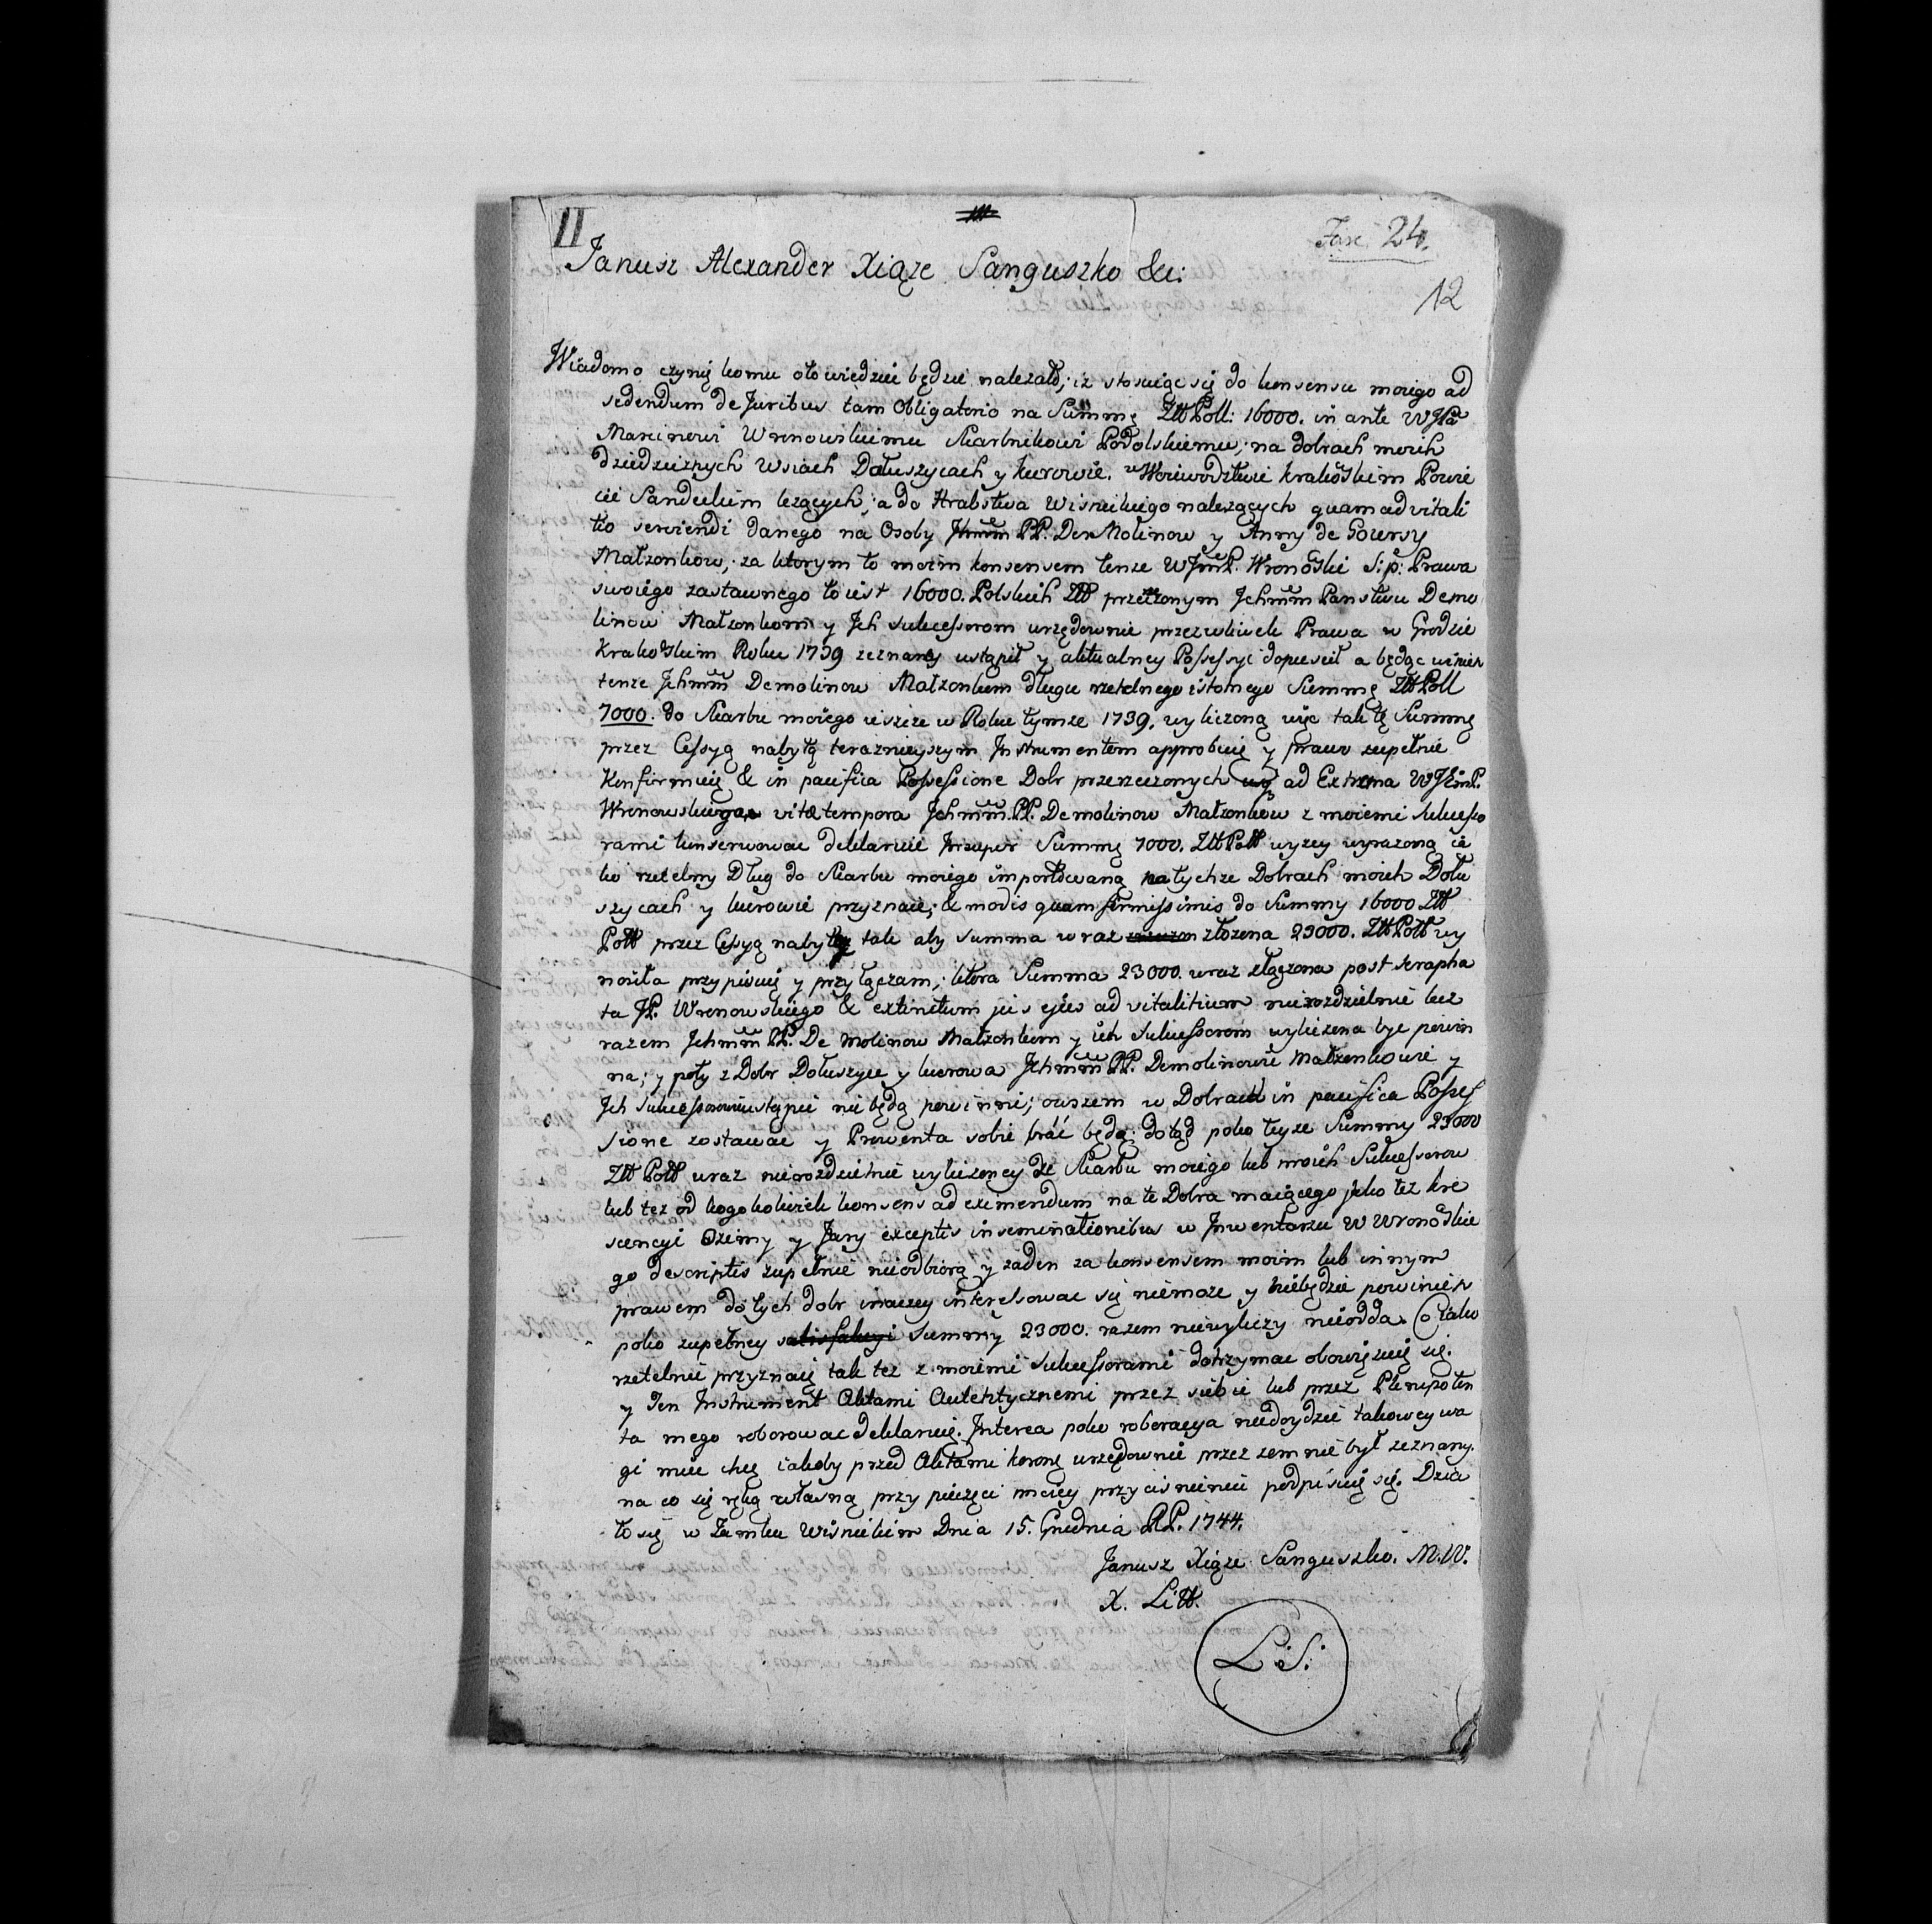 II
Fasc. 24.
12
Janusz Alexander Xiąze Sanguszko &c:
Wiadomo czynię komu oto wiedziec będzie nalezało; iz stosuiąc się do konsensu moiego ad
cedendum de Juribus tam Obligatorio na Summę Złł Poll: 16000. in ante WJPa
Marcinowi Wronowskiemu Skarbnikowi Podolskiemu; na dobrach moich
dziedzicznych wsiach Dołuszycach y Kurowie. w Woiewodztwie Krakoskim Powie
cie Sandeckim lezących; a do Hrabstwa Wisnickiego nalezących quam advitali
tio serviendi danego na Osoby Jchmm PP. Den Molinow y Anny de Goversy
Małzonkow; za ktorym to moim konsensem tenze WJmP. Wronoski S: p: Prawa
swoiego zastawnego to iest 16000. Polskich Złł przerzonym Jchmm Panstwu Demo
linow Małzonkom y Jch Sukcessorom urzędownie przezwlewek Prawa w Grodzie
Krakoskim Roku 1739 zeznany ustąpił y aktualney Possessyi dopuscił a będąc winien
tenze Jchmm Demolinow Małzonkom długu rzetelnego istotnego Summę Złł Poll
7000. do Skarbu moiego ieszcze w Roku tymze 1739. wyliczoną więc takę tę Summę
przez Cessyą nabytą teraznieyszym Instrumentem approbuię y prawo zupełnie
Konfirmuię & in pacifica Possessione Dobr przerzeczonych ad Extrema WJEmP.
Wronowskiego vitæ tempora Jchmm. PP. Demolinow Małzonkow z moiemi Sukcesso
rami konserwowac deklaruie Insuper Summę 7000. Złł Poll wyzey wyrazoną ia
ko rzetelny Dług do Skarbu moiego importowaną na tychze Dobrach moich Dołu
szycach y Kurowie przyznaie; & modis quam firmissimis do Summy 16000 Złł
Poll przez Cessyą nabytey tak aby summa wraz złozona 23000. Złł Poll wy
nosiła przypisuię y przyłączam; ktora Summa 23000. wraz złączona post
ta JP. Wronowskiego & extinctum jus ejus ad vitalitium nierozdzielnie lecz
razem Jchmm PP. De Molinow Małzonkom y ich Sukcessorom wyliczona byc powin
na; y poty z Dobr Dołuszyce y Kurowa Jchmm PP. Demolinowie Małzonkowie y
Jch Sukcessorowie ustąpic nie będą powinni; owszem w Dobrach in pacifica Posses
sione zostawac y Prowenta sobie brać będą; dotąd poko teyze Summy 23000
Złł Poll wraz nierozdzielnie wyliczoney ze Skarbu moiego lub moich Sukcessorow
lub tez od kogokolwiek konsens ad eximendum na te Dobra maiącego jako tez kre
scencyi Ozimy y Jary exceptis inseminationibus w Inwentarzu W Wronoskie
go descriptis zupełnie nieodbiorą y zaden za konsensem moim lub innym
prawem do tych dobr inaczey interessowac się niemoze y niebędzie powinien
poko zupełney satisfakcyi Summy 23000. razem niewyliczy nieodda. Co iako
rzetelnie przyznaię tak tez z moiemi Sukcessorami dotrzymac obowięzuię się.
y Ten Instrument Aktami Autentycznemi przez siebie lub przez Plenipoten
ta mego roborowac deklaruię. Interea poko roboracya niedoydzie takowey wa
gi miec chcę iakoby przed Aktami Koron urzędownie przez zemnie był zeznany.
na co się ręką własną przy pieczęci moiey przycisnieniu podpisuię się. Dzia
ło się w Zamku Wisnickim Dnia 15. Grudnia RP. 1744.
Janusz Xiąze Sanguszko. M. W.
X. Litt.
L: S: